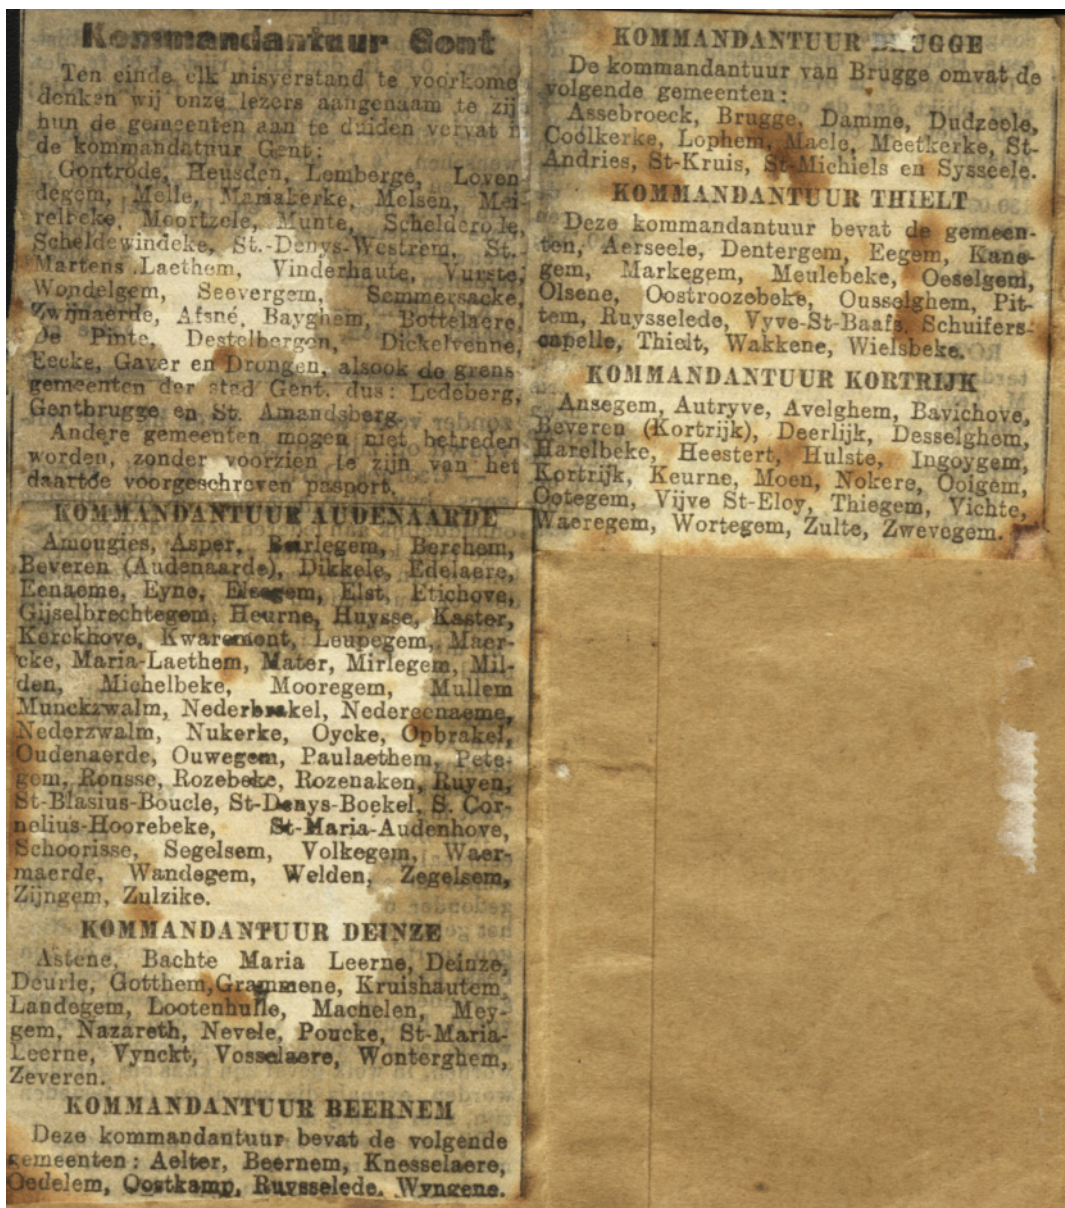 Kommandantuur Gent
Ten einde elk misverstand te voorkome
denken wij onze lezers aangenaam te zij
hun de gemeenten aan te duiden vervat i
de kommandatuur Gent:
Gontrode, Heusden, Lemberge, Loven
degem, Melle, Mariakerke, Melsen, Mei
relbeke, Moortzele, Munte, Schelderode,
Scheldewindeke, St.-Denys-Westrem, St.
Martens Laethem, Vinderhaute, Vurste,
Wondelgem, Seevergem, Semmersacke,
Zwijnaerde, Afsné, Bayghem, Bottelaere,
De Pinte, Destelbergen, Dickelvenne,
Eecke, Gaver en Drongen, alsook de grens
gemeenten der stad Gent. dus: Ledeberg,
Gentbrugge en St. Amandsberg.
Andere gemeenten mogen niet betreden
worden, zonder voorzien te zijn van het
daartoe voorgeschreven pasport.
KOMMANDANTUUR AUDENAARDE
Amougies, Asper, Beirlegem, Berchem,
Beveren (Audenaarde), Dikkele, Edelaere,
Eenaeme, Eyne, Elsegem, Elst, Etichove,
Gijselbrechtegem, Heurne, Huysse, Kaster,
Kerckhove, Kwaremont, Leupegem, Maer-
cke, Maria-Laethem, Mater, Mirlegem, Mil-
den, Michelbeke, Mooregem, Mullem
Munckzwalm, Nederbrakel, Nedereenaeme,
Nederzwalm, Nukerke, Oycke, Opbrakel,
Oudenaerde, Ouwegem, Paulaethem, Pete-
gem, Ronsse, Rozebeke, Rozenaken, Ruyen,
St-Blasius-Boucle, St-Denys-Boekel, S. Cor-
nelius-Hoorebeke, St-Maria-Audenhove,
Schoorisse, Segelsem, Volkegem, Waer-
maerde, Wandegem, Welden, Zegelsem,
Zijngem, Zulzike.
KOMMANDANTUUR DEINZE
Astene, Bachte Maria Leerne, Deinze,
Deurle, Gotthem, Grammene, Kruishautem,
Landegem, Lootenhulle, Machelen, Mey-
gem, Nazareth, Nevele, Poucke, St-Maria-
Leerne, Vynckt, Vosselaere, Wonterghem,
Zeveren.
KOMMANDANTUUR BEERNEM
Deze kommandantuur bevat de volgende
gemeenten: Aelter, Beernem, Knesselaere,
Oedelem, Oostkamp, Ruysselede, Wyngene.
KOMMANDANTUUR BRUGGE
De kommandantuur van Brugge omvat de
volgende gemeenten:
Assebroeck, Brugge, Damme, Dudzeele,
Coolkerke, Lophem, Maele, Meetkerke, St-
Andries, St-Kruis, St-Michiels en Sysseele.
KOMMANDANTUUR THIELT
Deze kommandantuur bevat de gemeen-
ten, Aerseele, Dentergem, Eegem, Kane-
gem, Markegem, Meulebeke, Oeselgem,
Olsene, Oostroozebeke, Ousselghem, Pit-
tem, Ruysselede, Vyve-St-Baafs, Schuifers-
capelle, Thielt, Wakkene, Wielsbeke.
KOMMANDANTUUR KORTRIJK
Ansegem, Autryve, Avelghem, Bavichove,
Beveren (Kortrijk), Deerlijk, Desselghem,
Harelbeke, Heestert, Hulste, Ingoygem,
Kortrijk, Keurne, Moen, Nokere, Ooigem,
Ootegem, Vijve St-Eloy, Thiegem, Vichte,
Waeregem, Wortegem, Zulte, Zwevegem.